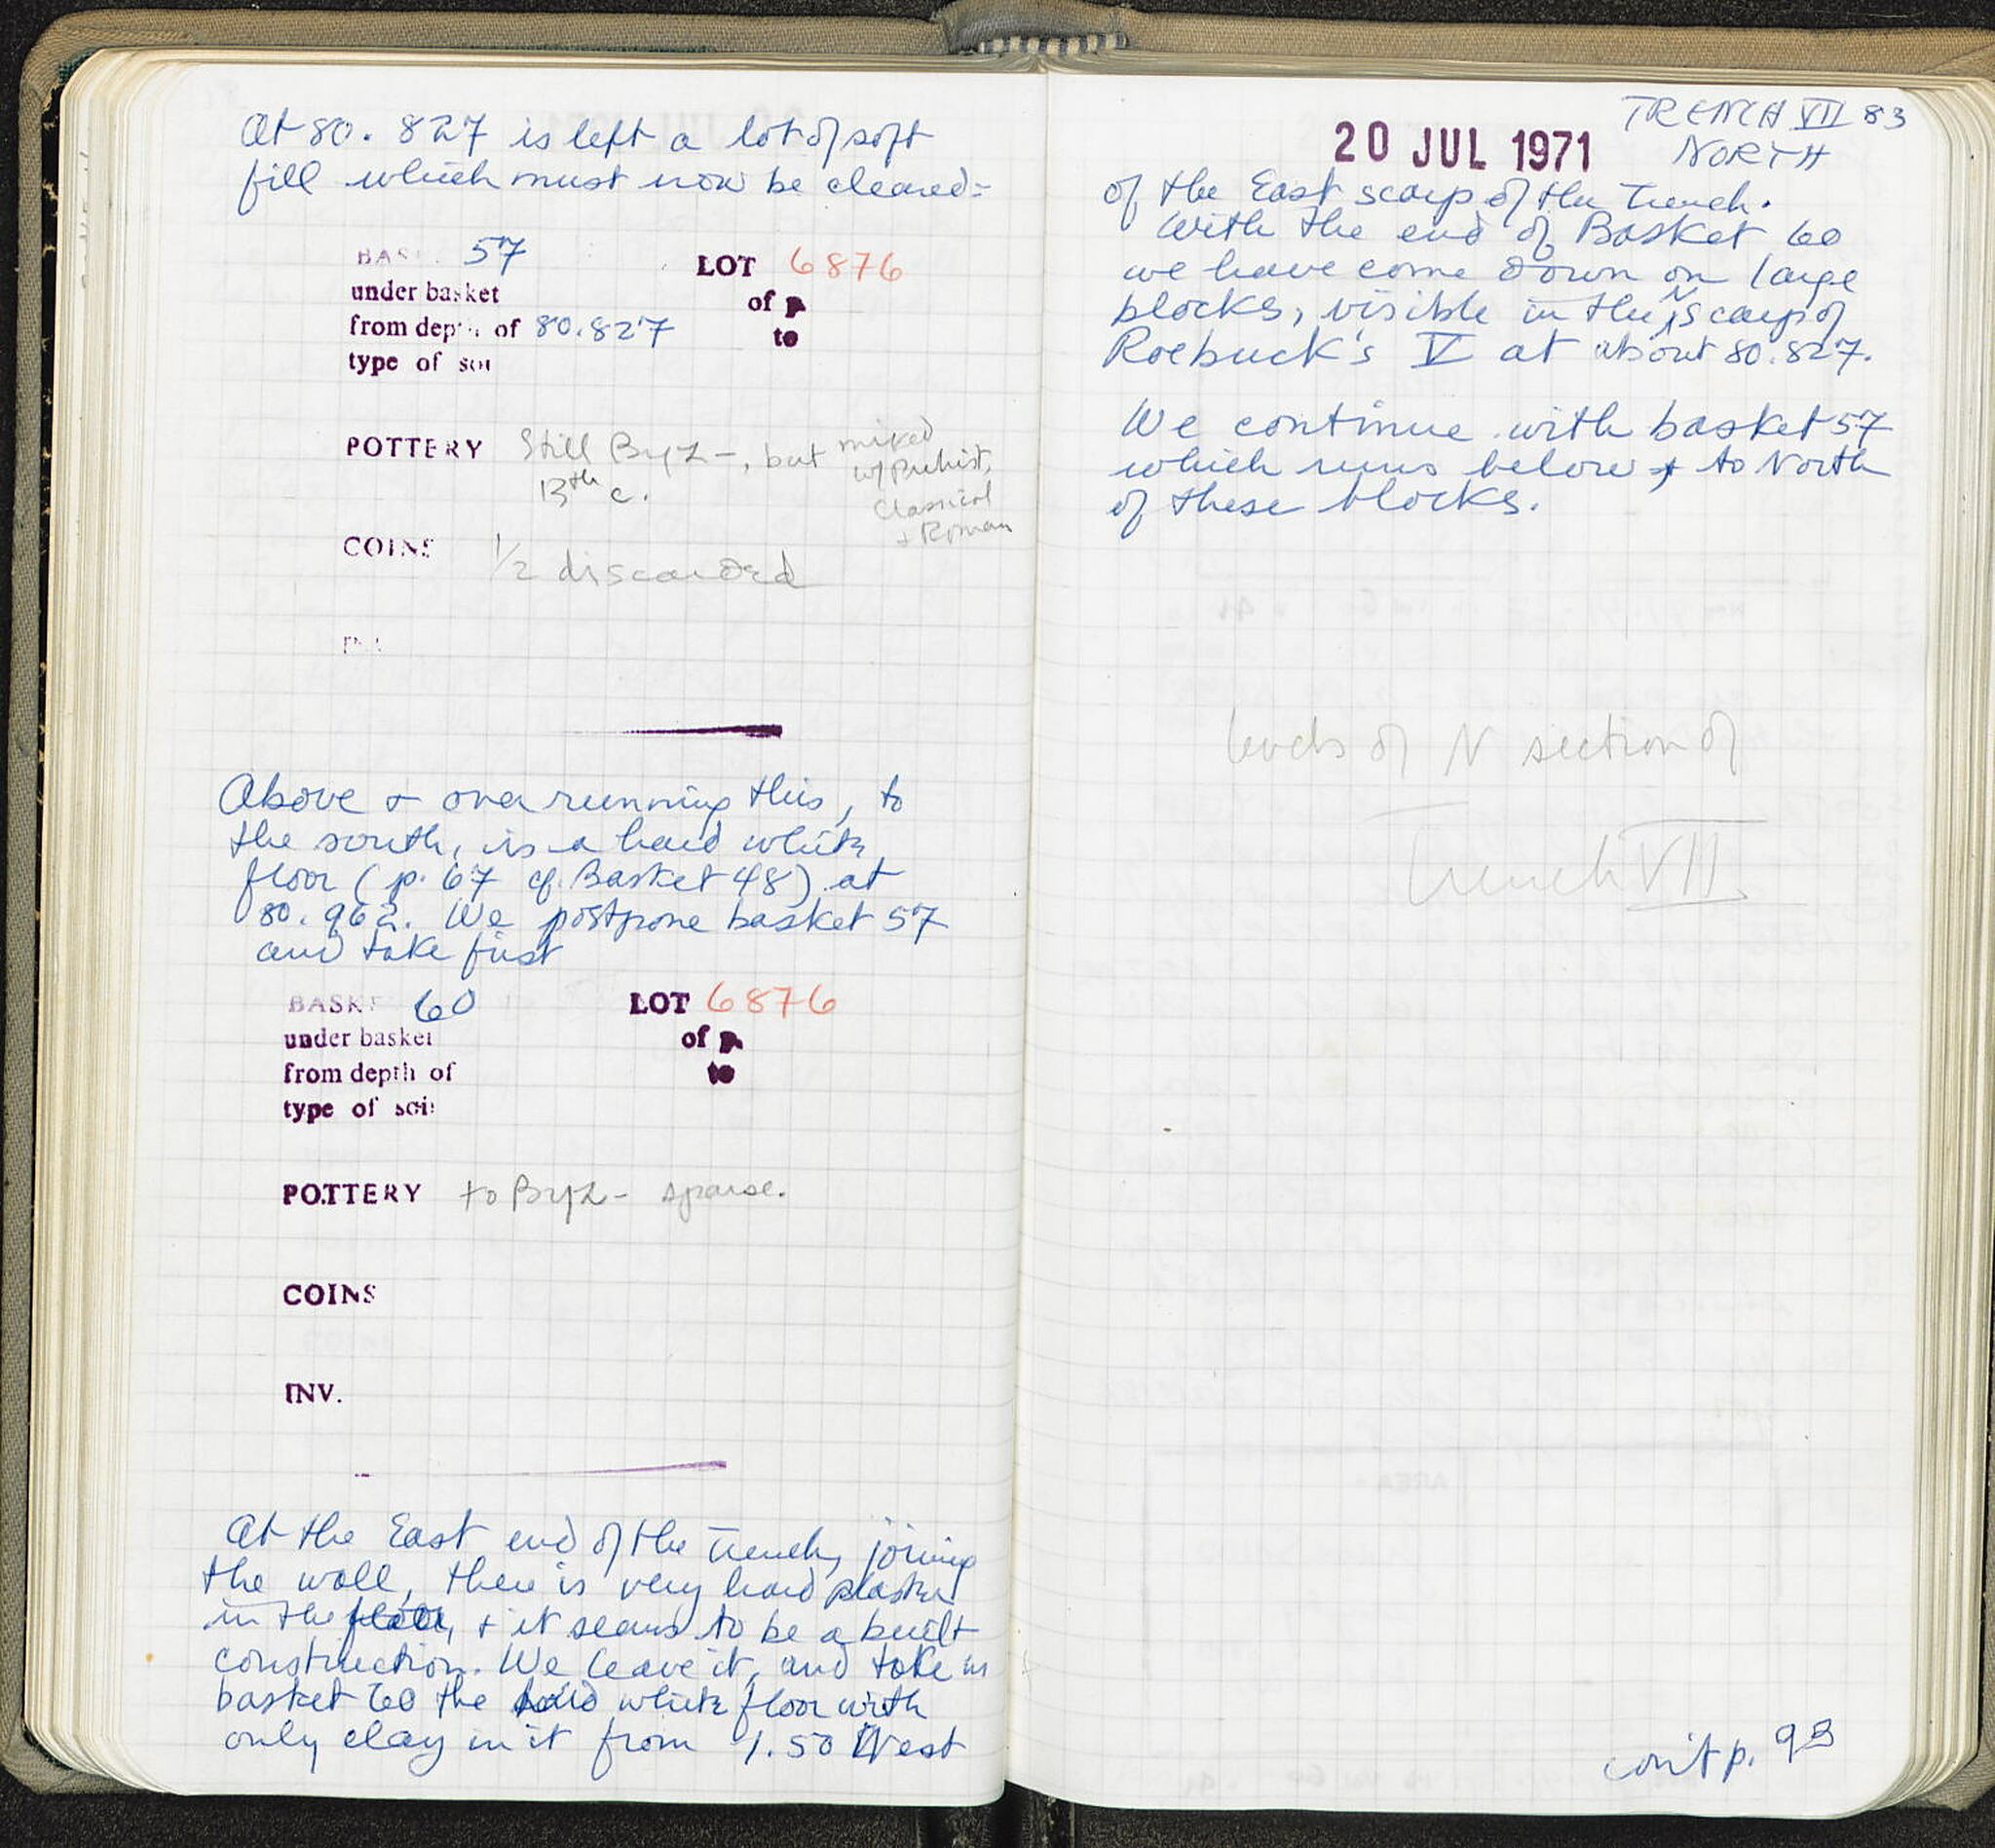 At 80.827 is left a lot of soft
fill which must now be cleared=
BAS 57 LOT 6876
under basket of p.
from depth of 80.827 to
type of soi
POTTERY Still Byz-, but mixed
w/Prehist,
13th c. Classical
+ Roman
COINS 1/2 discarded
Above + over running this, to
the south, is a hard white
floor (p. 67 cf. Basket 48) at
80.962. We postpone basket 57
and take first
BASKE 60 LOT 6876
under basket of p.
from depth of to
type of soil
POTTERY to Byz- sparse.
COINS
INV.
At the East end of the trench, joining
the wall, there is very hard plaster
in the floor, + it seems to be a built
construction. We leave it, and take in
basket 60 the hard white floor with
only clay in it from 1.50 West
TRENCH VII 83
20 JUL 1971 NORTH
of the East scarp of the trench.
With the end of Basket 60
we have come down on large
blocks, visible in the N scarp of
Roebuck's V at about 80.827.
We continue with basket 57
which runs below + to North
of these blocks.
levels of N section of
Trench VII
con't p. 93